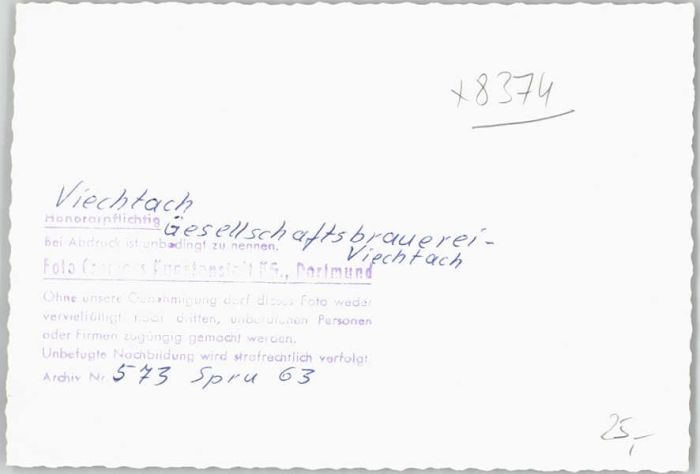 x8374
Viechtach
Honorarpflichtig Gesellschaftsbrauerei-
Viechtach
Bei Abdruck ist unbedingt zu nennen.
Foto Kunstanstalt KG., Dortmund
Ohne unsere Genehmigung darf dieses Foto weder
vervielfältigt noch dritten, unberufenen Personen
oder Firmen zugängig gemacht werden.
Unbefugte Nachbildung wird strafrechtlich verfolgt
Archiv Nr. 573 Spru 63
25,-